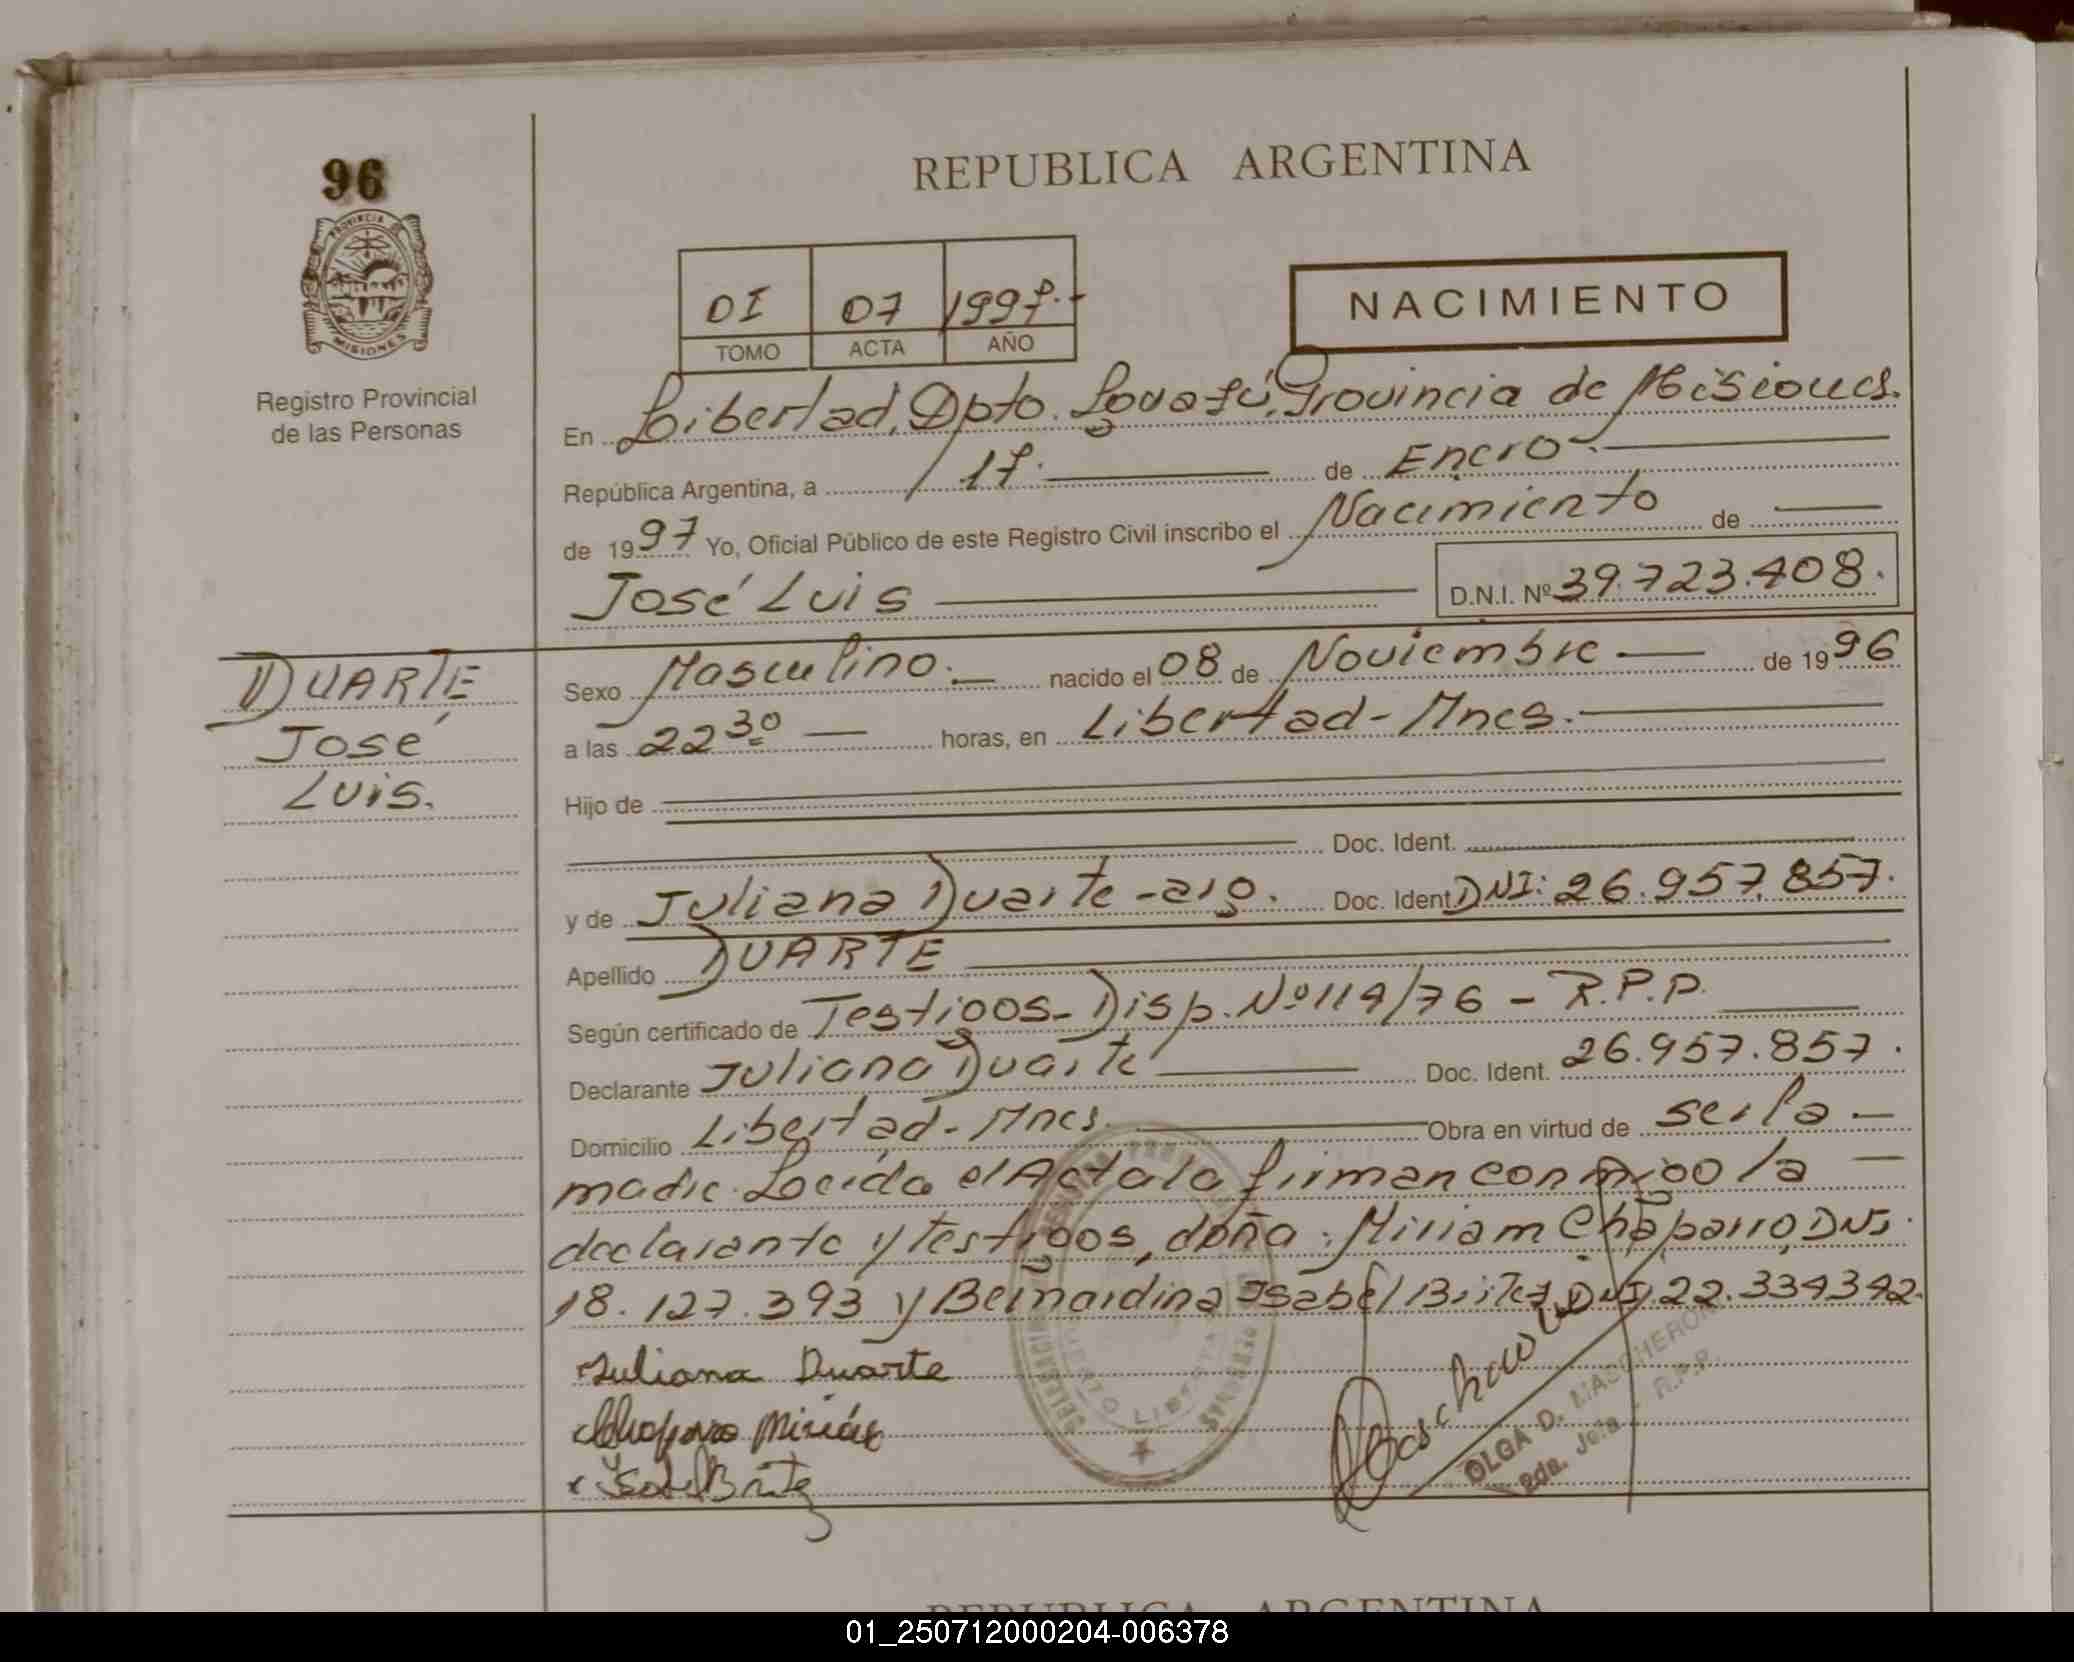 96
PROVINCIA
MISIONES
Registro Provincial
de las Personas
REPUBLICA ARGENTINA
0I 07 1997.-
TOMO ACTA AÑO
NACIMIENTO
En Libertad, Dpto. Iguazú, Provincia de Misiones.
República Argentina, a 17. de Enero.
de 1997 Yo, Oficial Público de este Registro Civil inscribo el Nacimiento de
José Luis D.N.I. Nº 39.723.408.
DUARTE
José
Luis.
Sexo Masculino. nacido el 08 de Noviembre de 1996
a las 22 30 horas, en Libertad - Mnes.
Hijo de
Doc. Ident.
y de Juliana Duarte - arg. Doc. Ident DNI: 26.957.857.
Apellido DUARTE
Según certificado de Testigos - Disp. Nº 114/76 - R.P.P.
Declarante Juliana Duarte Doc. Ident. 26.957.857.
Domicilio Libertad - Mnes. Obra en virtud de ser la
madre. Leída el Acta la firman conmigo la
declarante y testigos, doña: Miriam Chaparro, DNI.
18.127.393 y Bernardina Isabel Britez DNI 22.334342.
Juliana Duarte
Isabel Britez
OLGA D. MASCHERONI
R.P.P.
REPUBLICA ARGENTINA
01_250712000204-006378